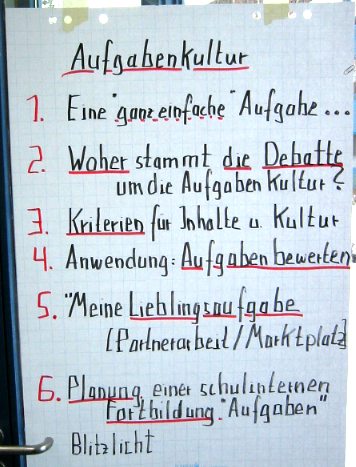 Aufgabenkultur
1. Eine "ganz einfache" Aufgabe...
2. Woher stammt die Debatte
um die Aufgaben Kultur?
3. Kriterien für Inhalte u. Kultur
4. Anwendung: Aufgaben bewerten
5. "Meine Lieblingsaufgabe
[Partnerarbeit/Marktplatz]
6. Planung einer schulinternen
Fortbildung "Aufgaben"
Blitzlicht